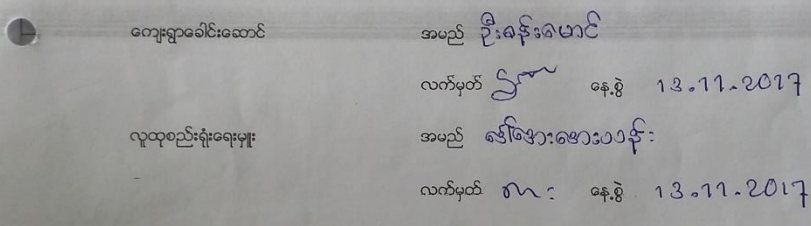 ကျေးရွာခေါင်းဆောင် အမည် ဦးခန်းမောင်
လက်မှတ် နေ့စွဲ 13.11.2017
လူထုစည်းရုံးရေးမှူး အမည် ဒေါ်အေးအေး
လက်မှတ် နေ့စွဲ 13.11.2017